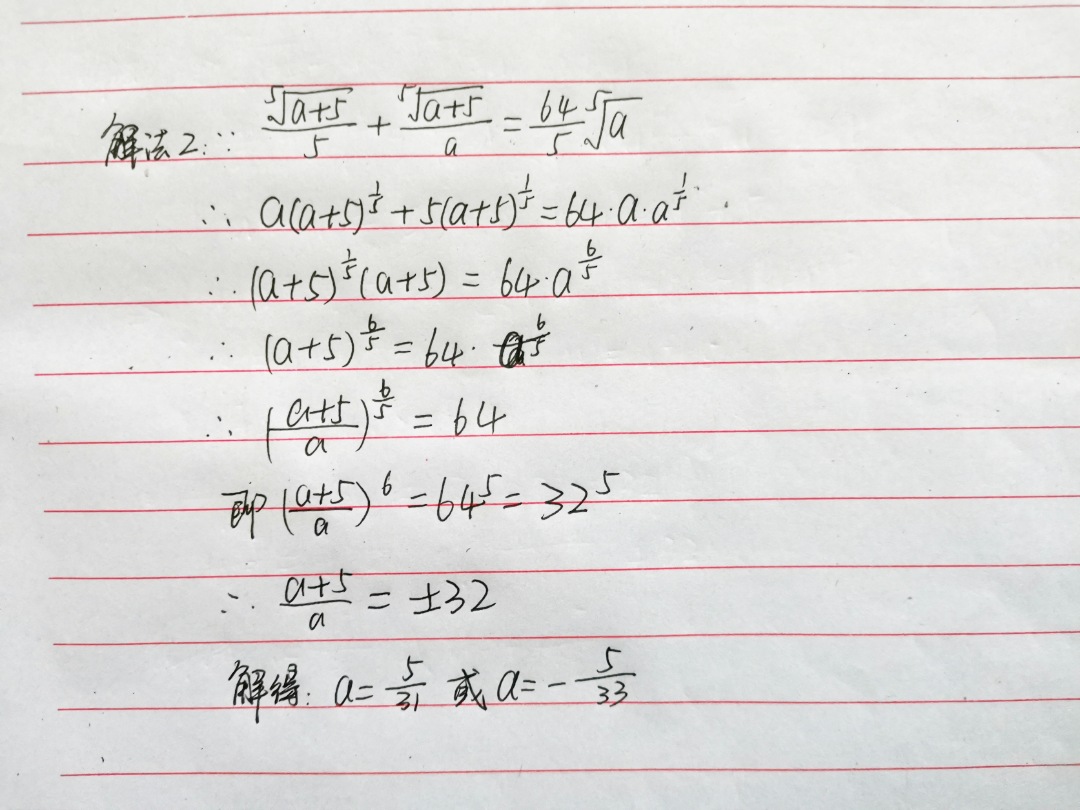 解法2:∵ ⁵√(a+5)/5 + ⁵√(a+5)/a = 64/5 ⁵√a
∴ a(a+5)^(1/5) + 5(a+5)^(1/5) = 64·a·a^(1/5)
∴ (a+5)^(1/5)(a+5) = 64·a^(6/5)
∴ (a+5)^(6/5) = 64·a^(6/5)
∴ ((a+5)/a)^(6/5) = 64
即 ((a+5)/a)^6 = 64^5 = 32^5
∴ (a+5)/a = ±32
解得: a = 5/31 或 a = -5/33